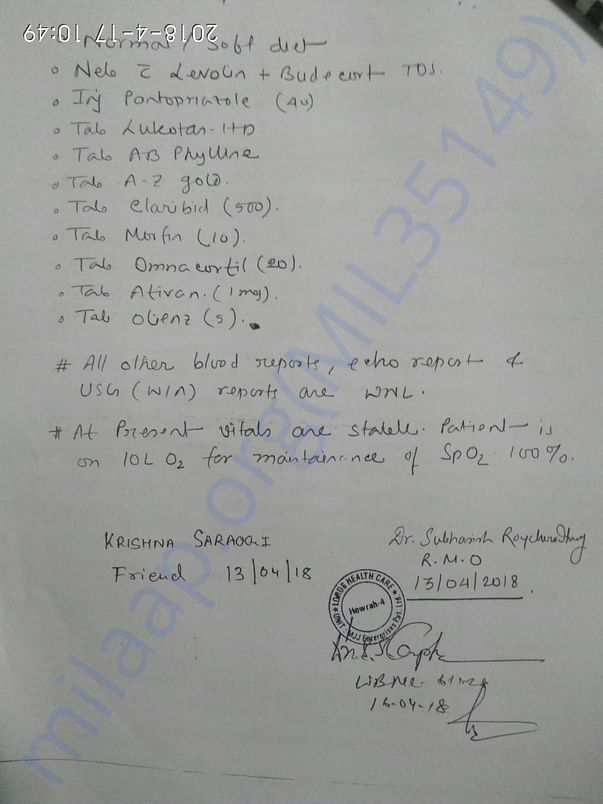 2018-4-17 10:49
Normal / Soft diet
Neb c̄ Levolin + Budecort TDS.
Inj Pantoprazole (40)
Tab Lukotas-HD
Tab AB Phylline
Tab A-Z gold.
Tab Claribid (500).
Tab Morfin (10).
Tab Omnacortil (20).
Tab Ativan. (1mg).
Tab Oleanz (5).
# All other blood reports, echo report &
USG (W/A) reports are WNL.
# At Present vitals are stable. Patient is
on 10L O2 for maintainence of SpO2 100%.
KRISHNA SARAOGI
Friend 13/04/18
Dr. Subhasish Roychowdhury
R.M.O
13/04/2018
LORDS HEALTH CARE
Howrah-4
milaap.org(MIL35149)